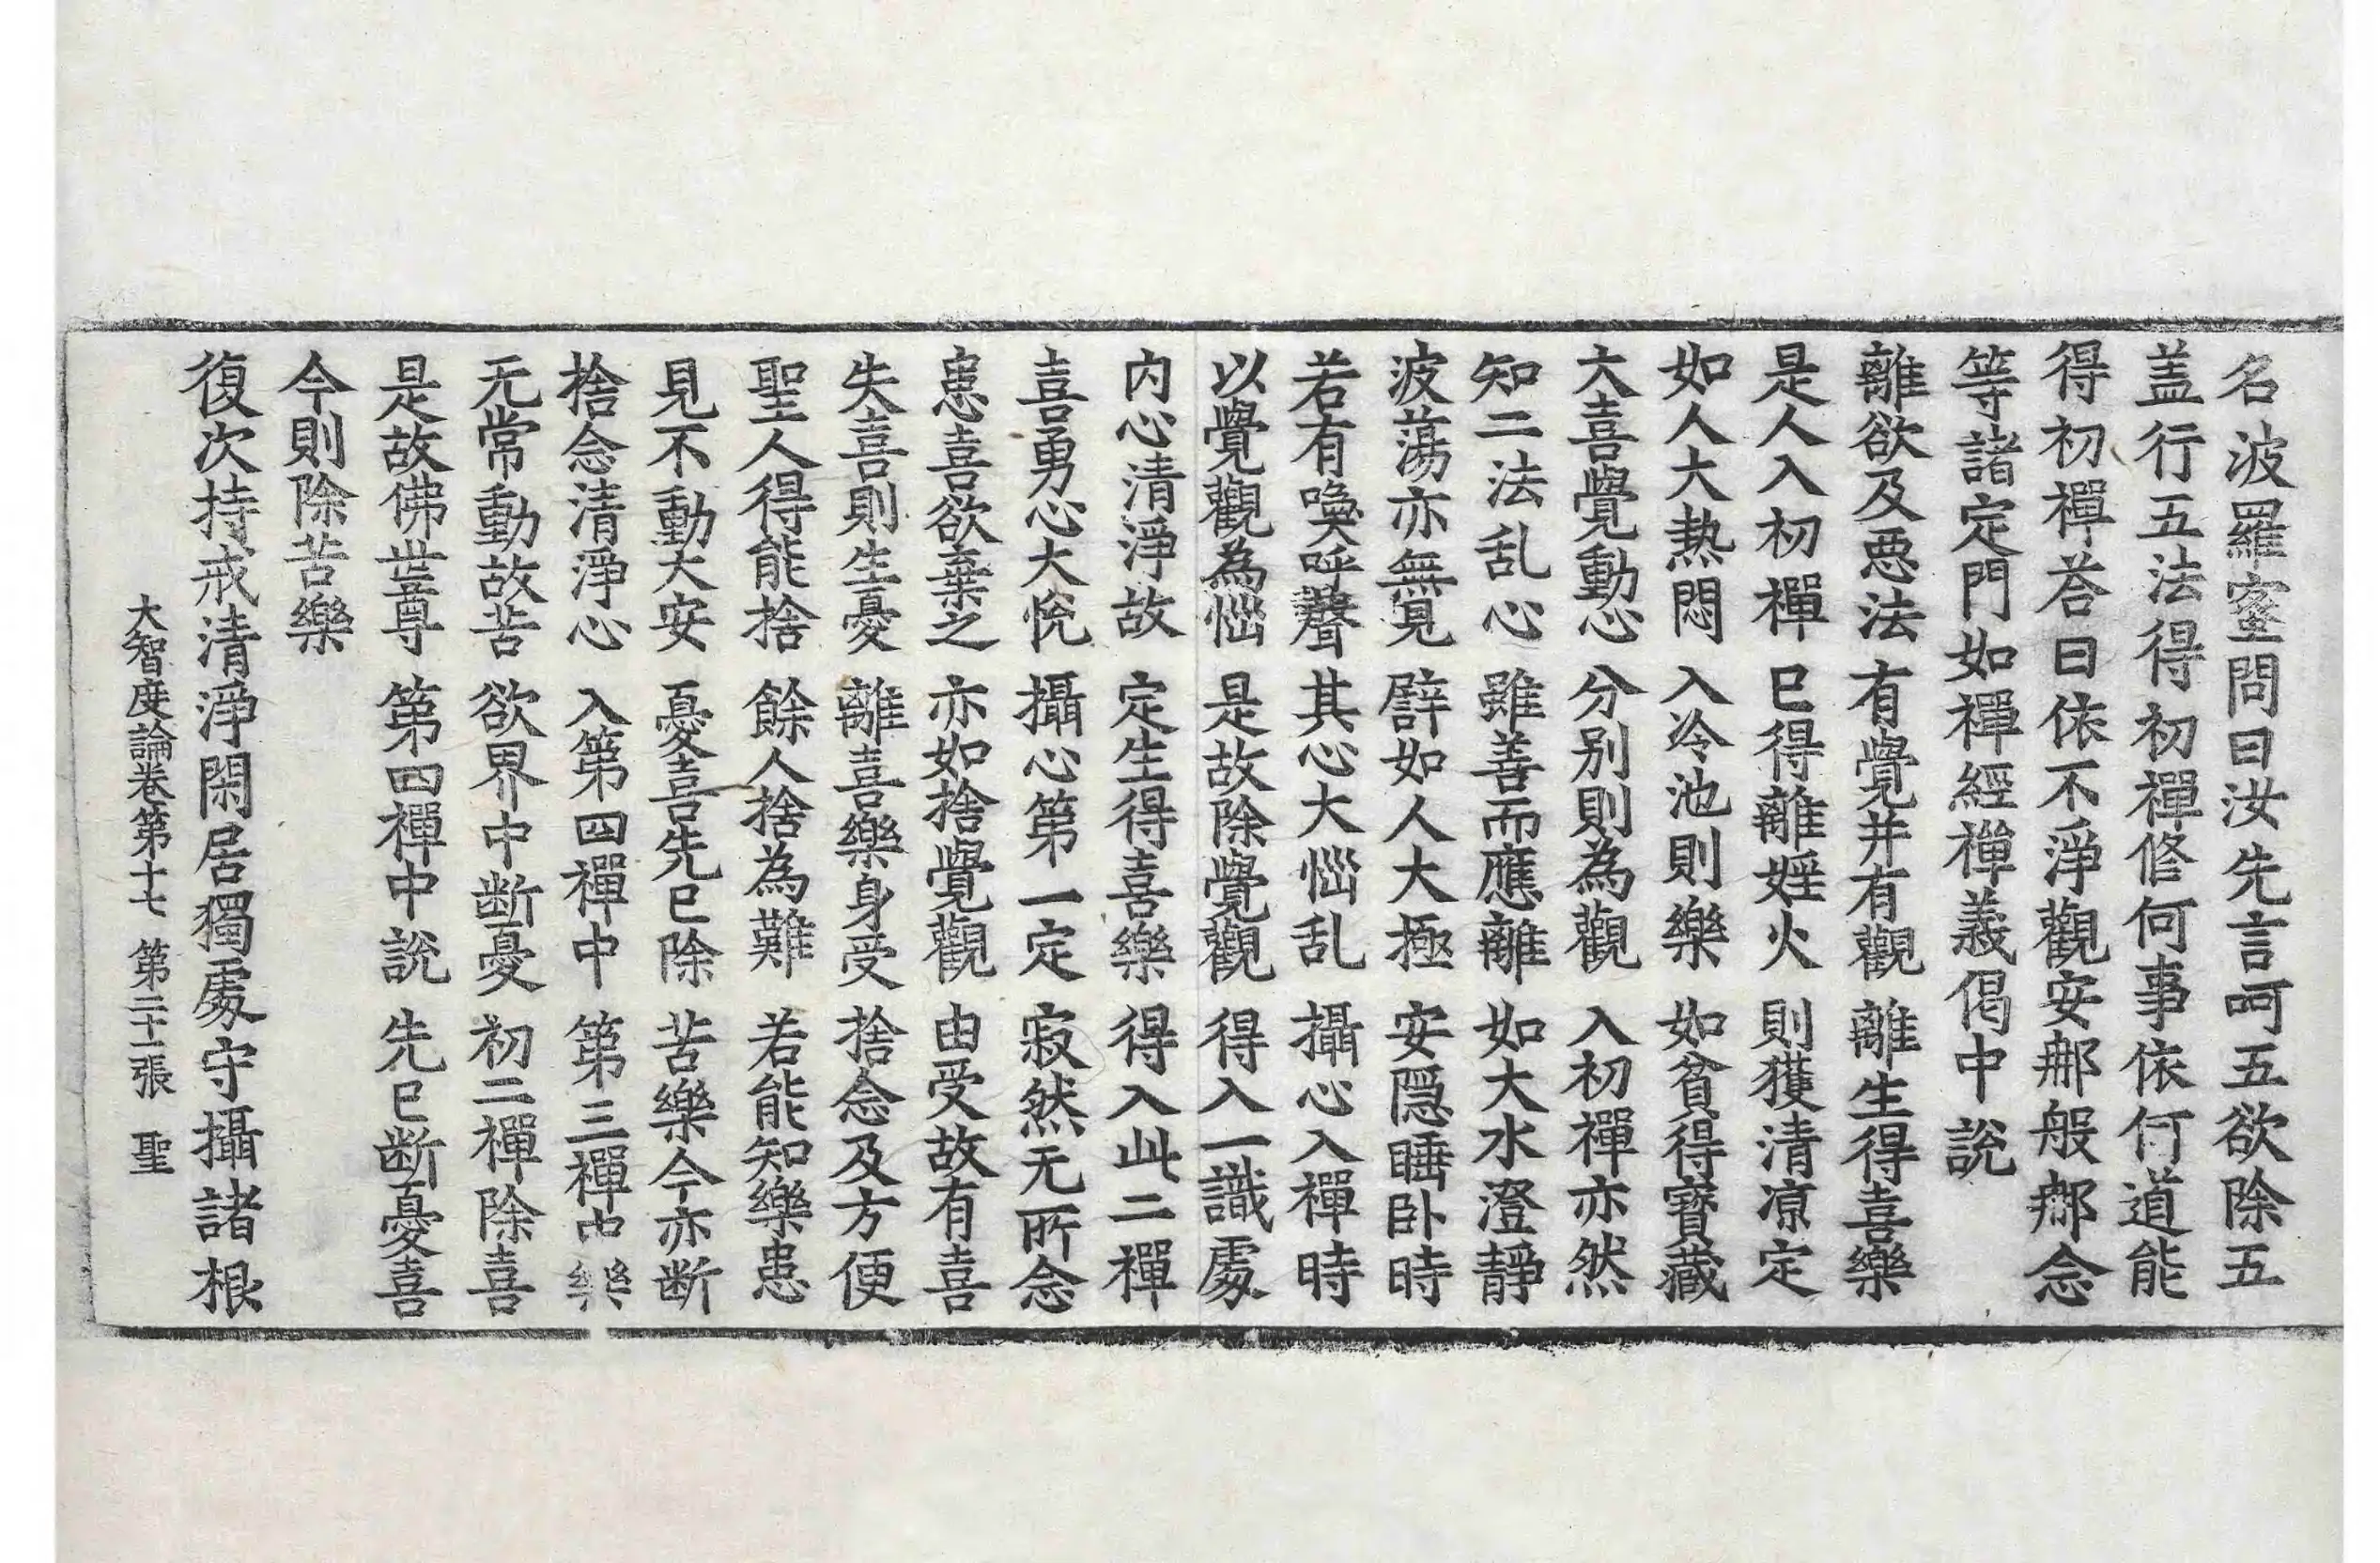 名波羅蜜問曰汝先言呵五欲除五
盖行五法得初禪修何事依何道能
得初禪荅曰依不淨觀安那般那念
等諸定門如禪經禪義偈中說
離欲及悪法　有覺并有觀　離生得喜樂
是人入初禪　已得離婬火　則獲清凉定
如人大熱悶　入冷池則樂　如貧得寶藏
大喜覺動心　分别則為觀　入初禪亦然
知二法乱心　雖善而應離　如大水澄靜
波蕩亦無見　譬如人大極　安隱睡卧時
若有喚呼聲　其心大惱乱　攝心入禪時
以覺觀為惱　是故除覺觀　得入一識處
内心清淨故　定生得喜樂　得入此二禪
喜勇心大恱　攝心第一定　寂然无所念
患喜欲棄之　亦如捨覺觀　由受故有喜
失喜則生憂　離喜樂身受　捨念及方便
聖人得能捨　餘人捨為難　若能知樂患
見不動大安　憂喜先已除　苦樂今亦断
捨念清淨心　入第四禪中　第三禪中樂
无常動故苦　欲界中断憂　初二禪除喜
是故佛世尊　第四禪中說　先已断憂喜
今則除苦樂
復次持戒清淨閑居獨處守攝諸根
大智度論卷第十七　第二十一張　聖